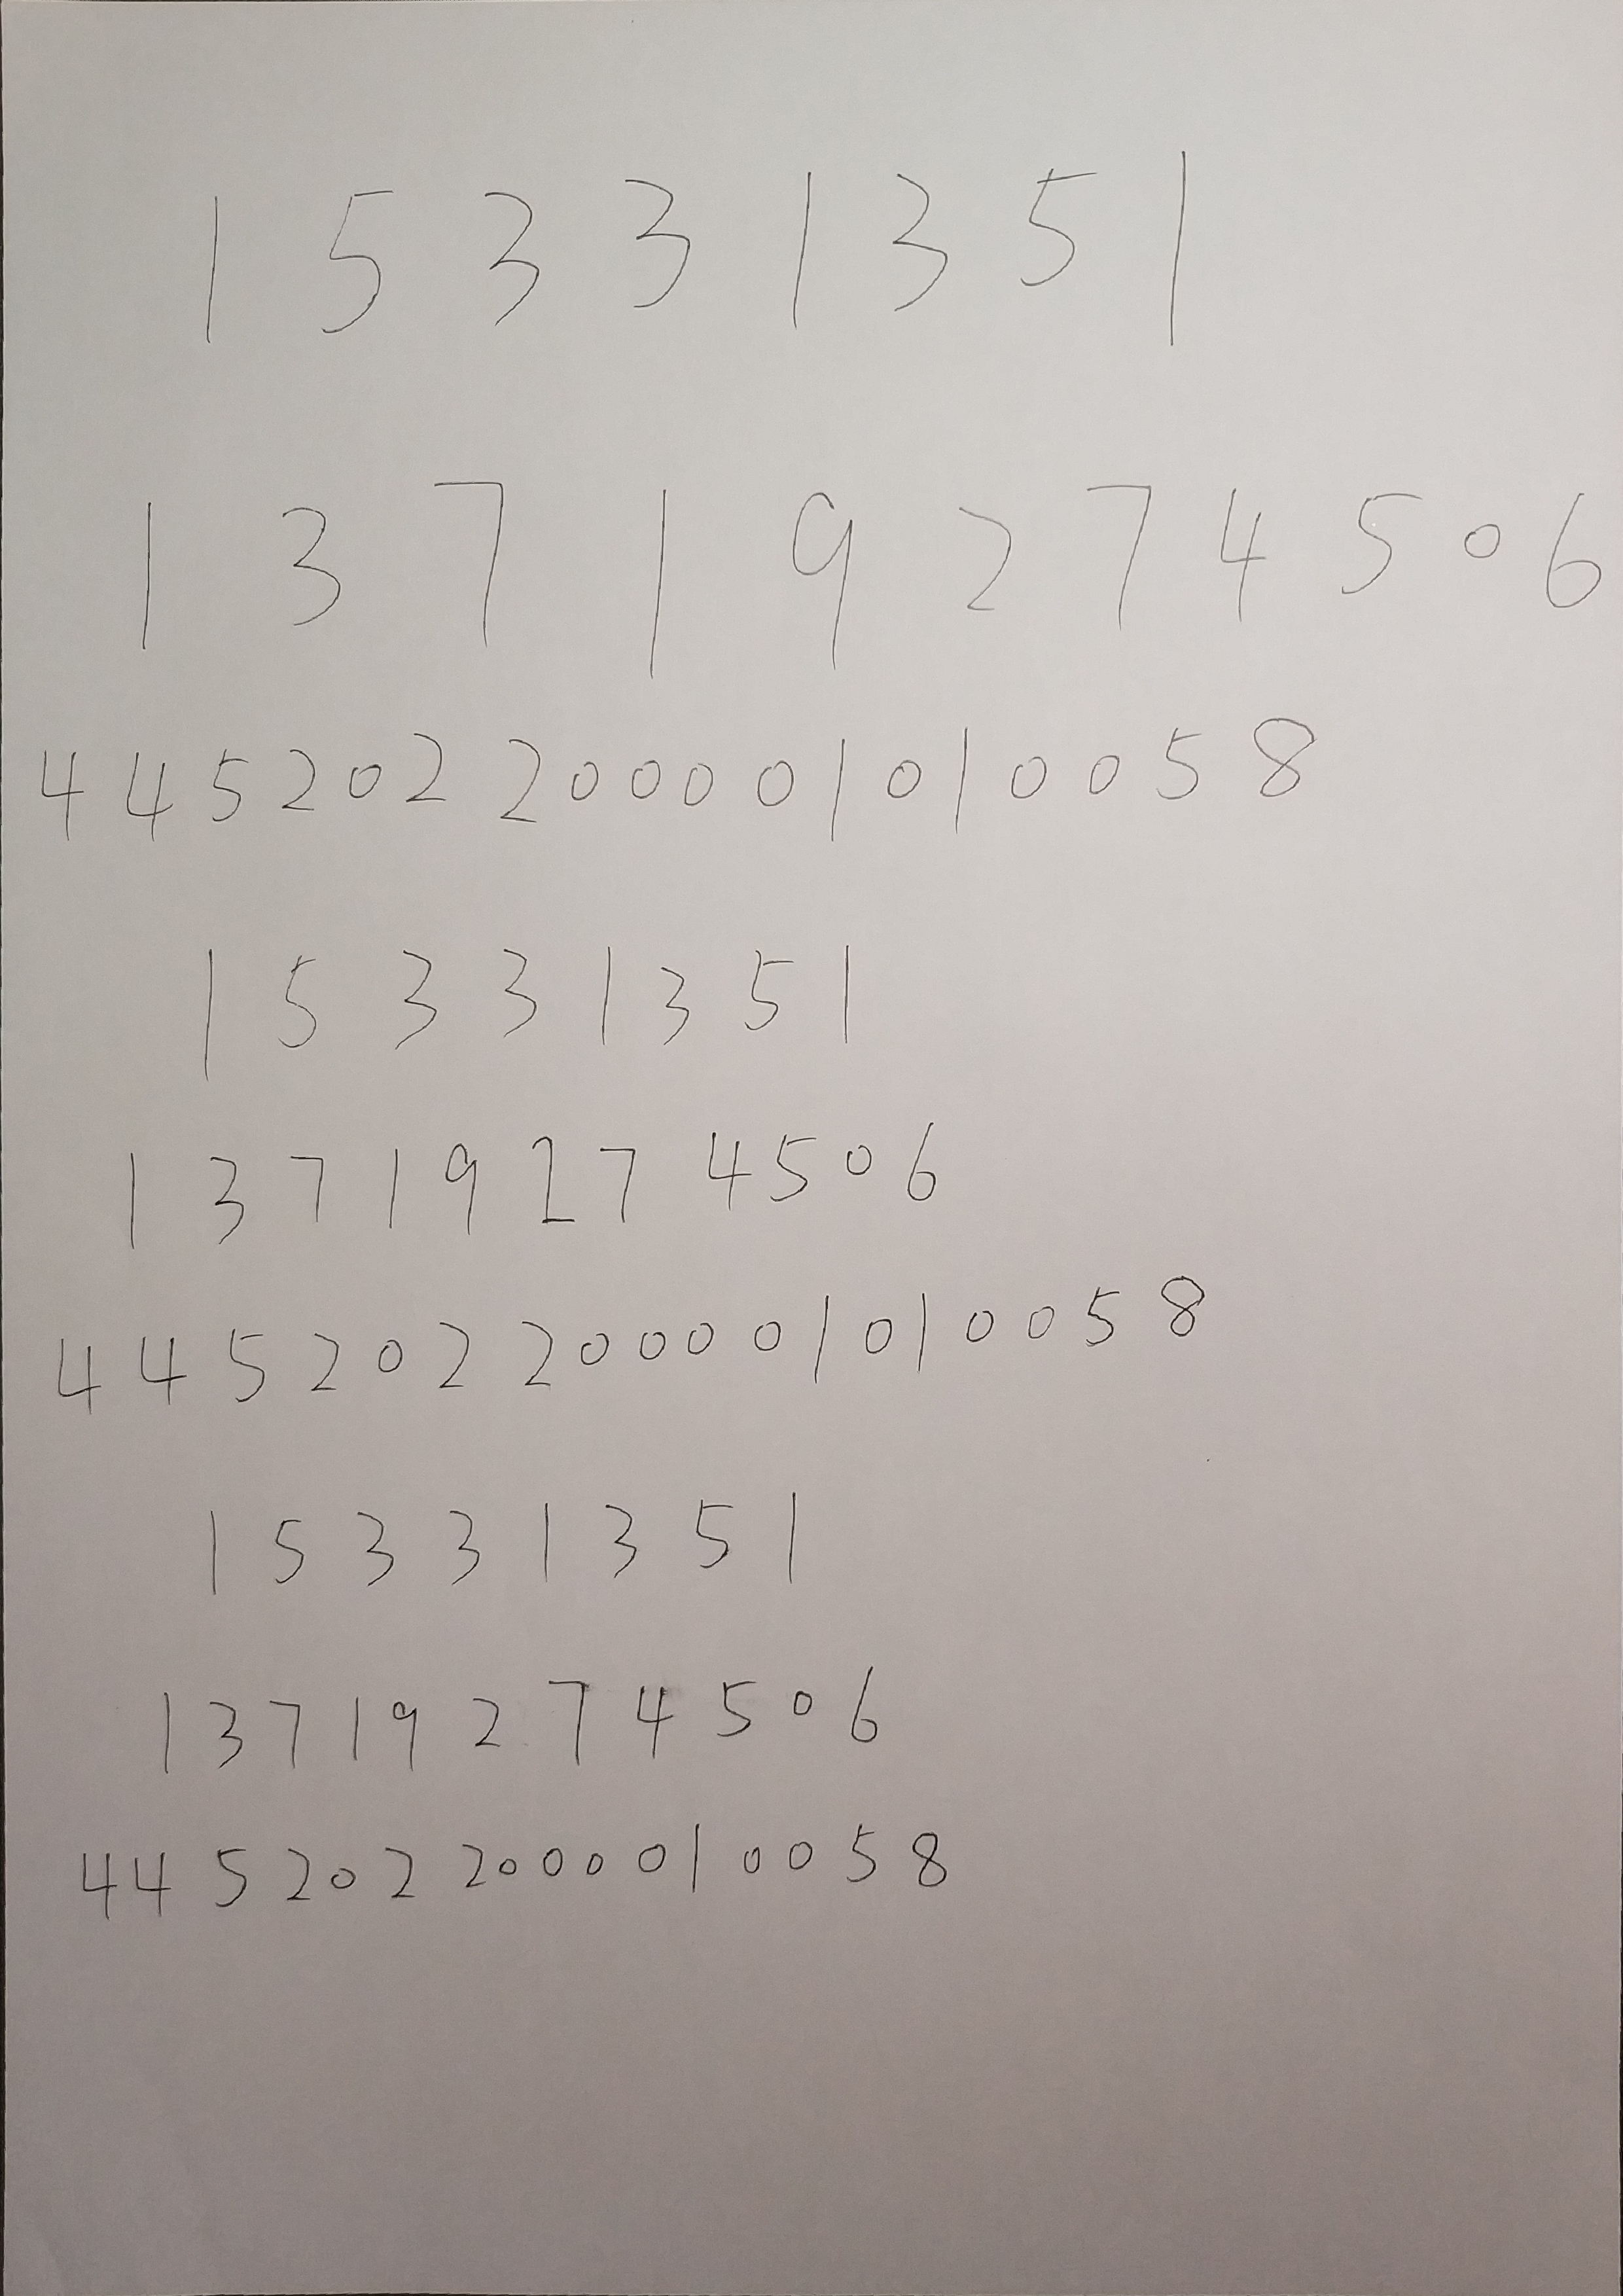 1 5 3 3 1 3 5 1
1 3 7 1 9 2 7 4 5 0 6
4 4 5 2 0 2 2 0 0 0 0 1 0 1 0 0 5 8
1 5 3 3 1 3 5 1
1 3 7 1 9 2 7 4 5 0 6
4 4 5 2 0 2 2 0 0 0 0 1 0 1 0 0 5 8
1 5 3 3 1 3 5 1
1 3 7 1 9 2 7 4 5 0 6
4 4 5 2 0 2 2 0 0 0 0 1 0 0 5 8